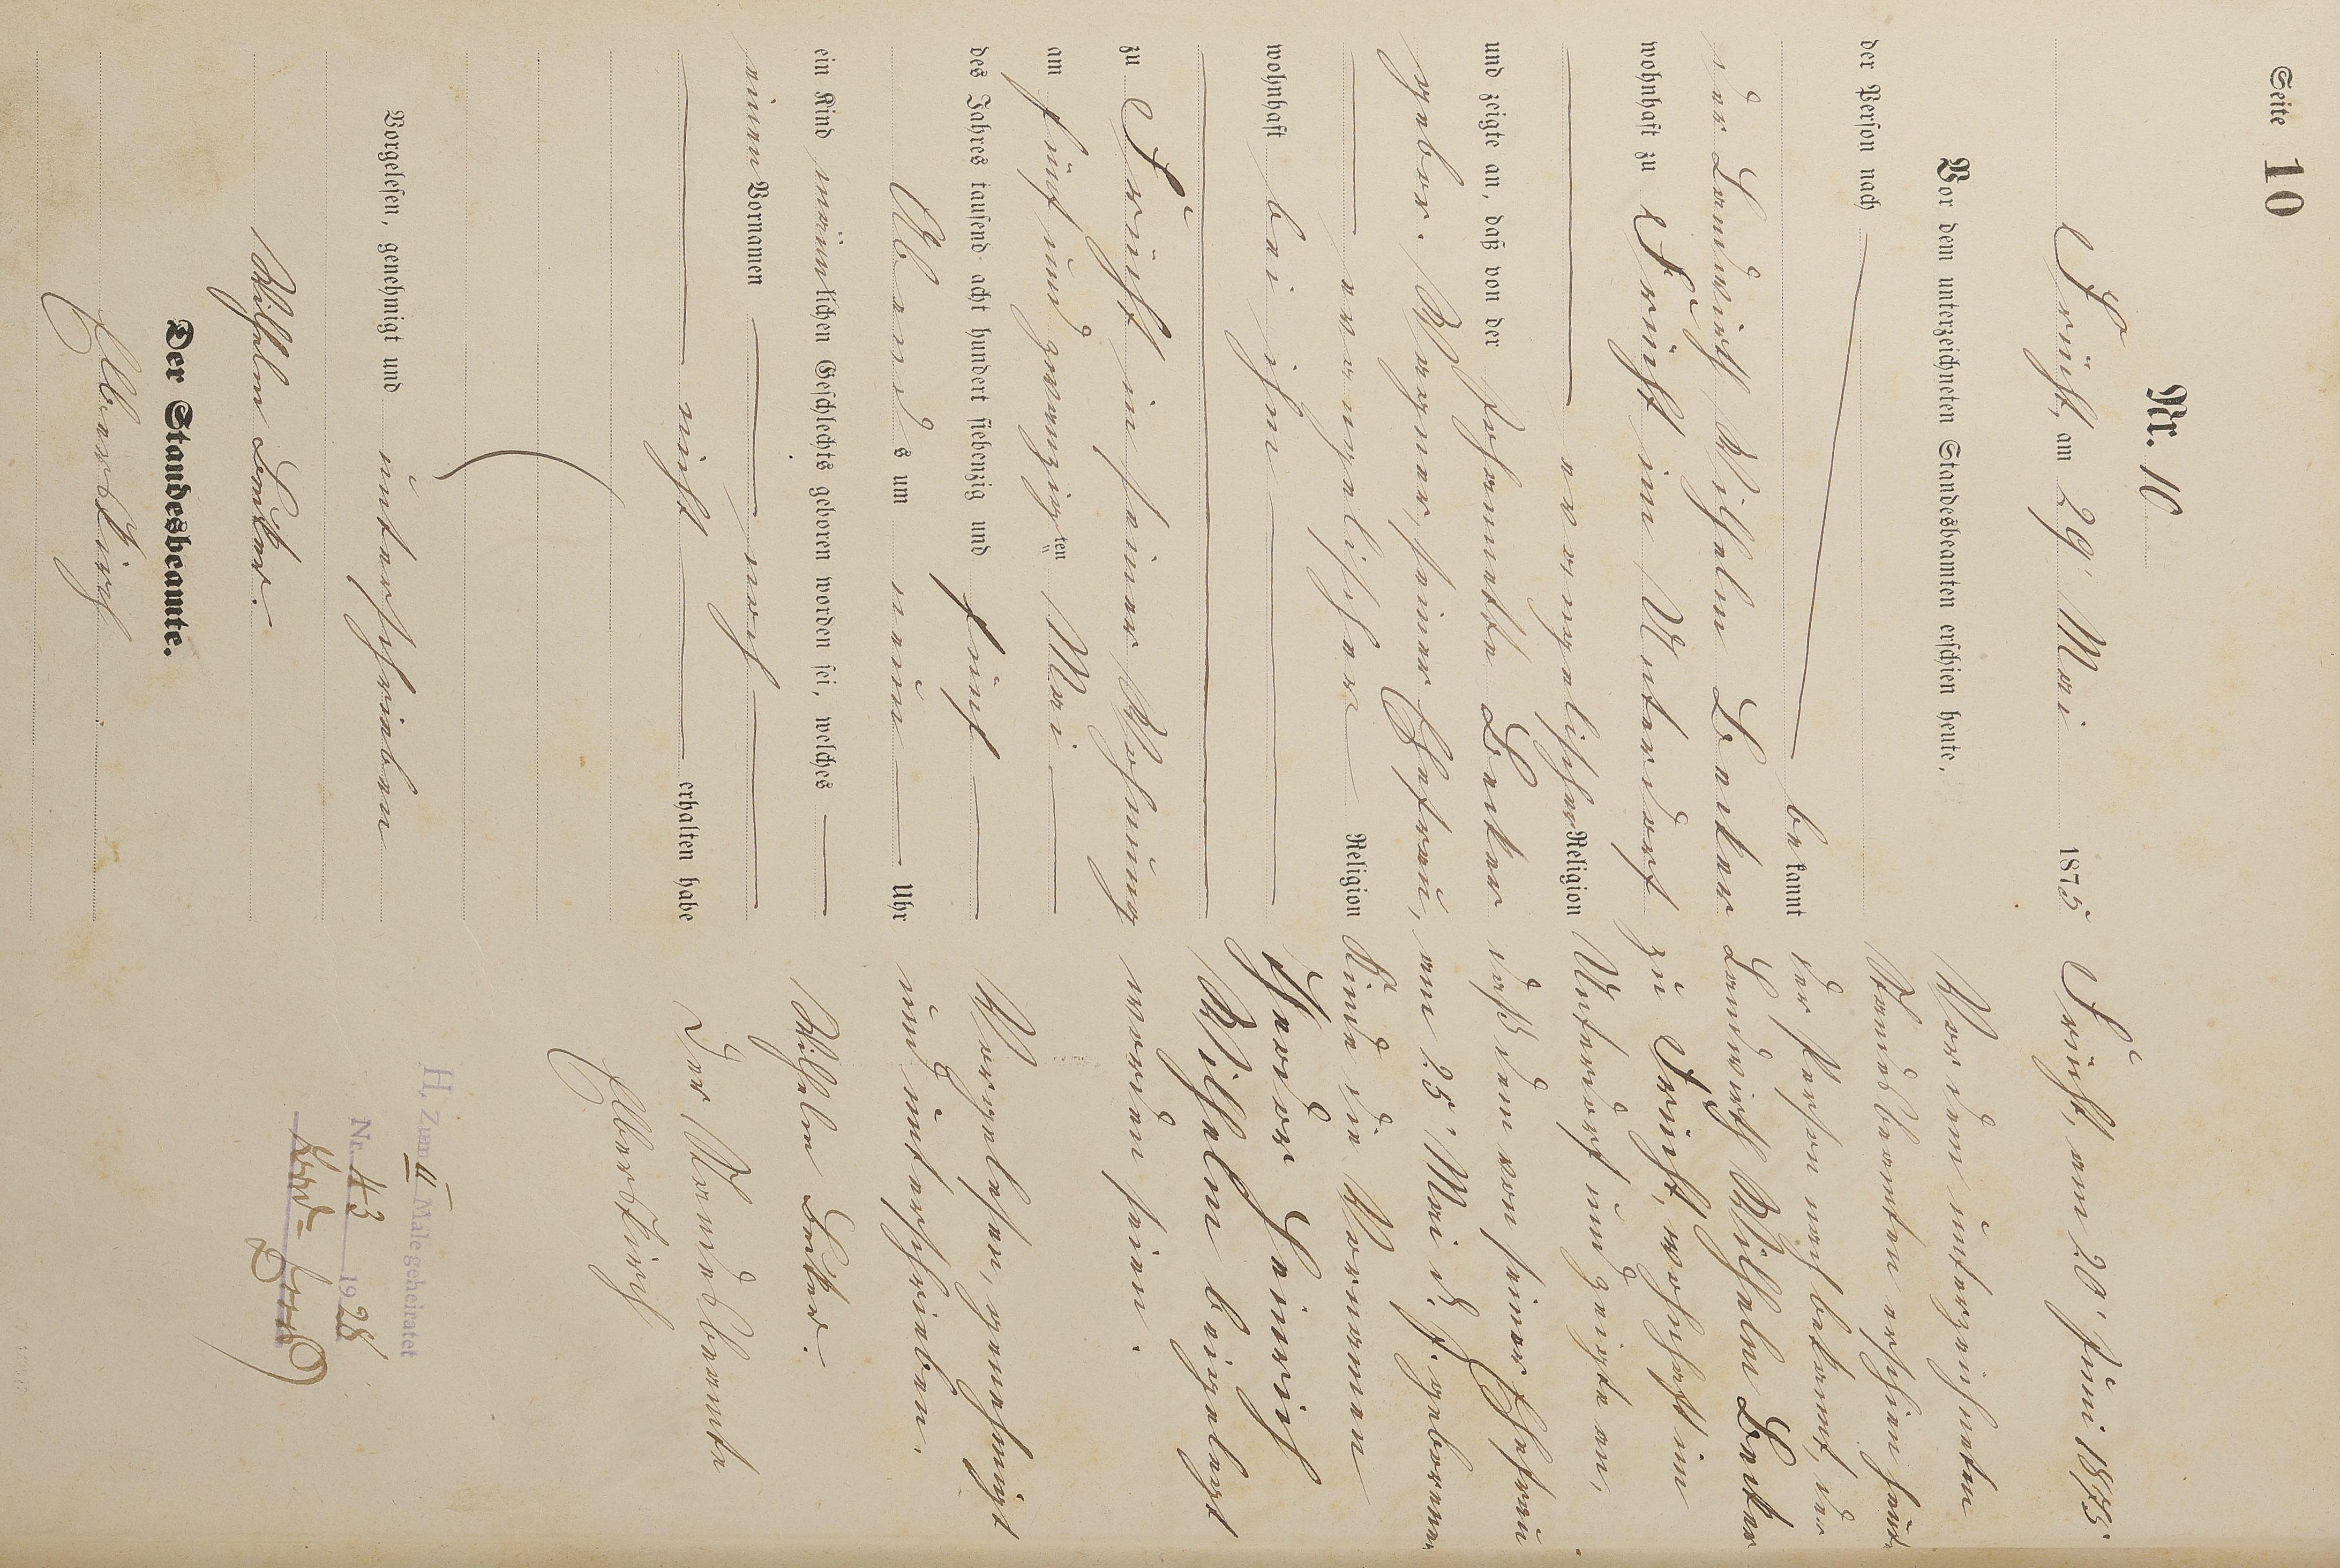 Seite 10
Nr. 10
Frücht, am 29' Mai 1875
Vor dem unterzeichneten Standesbeamten erschien heute,
der Person nach
bekannt
der Landwirth Wilhelm Becker
wohnhaft zu Frücht im Unterdorf
evangelischer Religion
und zeigte an, daß von der Johannette Becker
gebor. Wagner, seiner Ehefrau,
evangelischer Religion
wohnhaft bei ihm
zu Frücht in seiner Wohnung
am fünf und zwanzigten Mai
des Jahres tausend acht hundert siebenzig und fünf
Abends um neun Uhr
ein Kind männlichen Geschlechts geboren worden sei, welches
einen Vornamen noch
nicht erhalten habe
Vorgelesen, genehmigt und unterschrieben
Wilhelm Becker.
Der Standesbeamte.
Frücht, am 20' Juni 1875
Vor dem unterzeichneten
Standesbeamten erschien heute
der Person nach bekannt, der
Landwirth Wilhelm Becker
zu Frücht, wohnhaft im
Unterdorf und zeigte an,
daß dem von seiner Ehefrau
am 25' Mai d. J. geborenen
Kinde die Vornamen
Heinrich
Wilhelm beigelegt
worden seien.
Vorgelesen, genehmigt
und unterschrieben.
Wilhelm Becker.
Der Standesbeamte
H, Zum II Male geheiratet
Nr. 43 1928